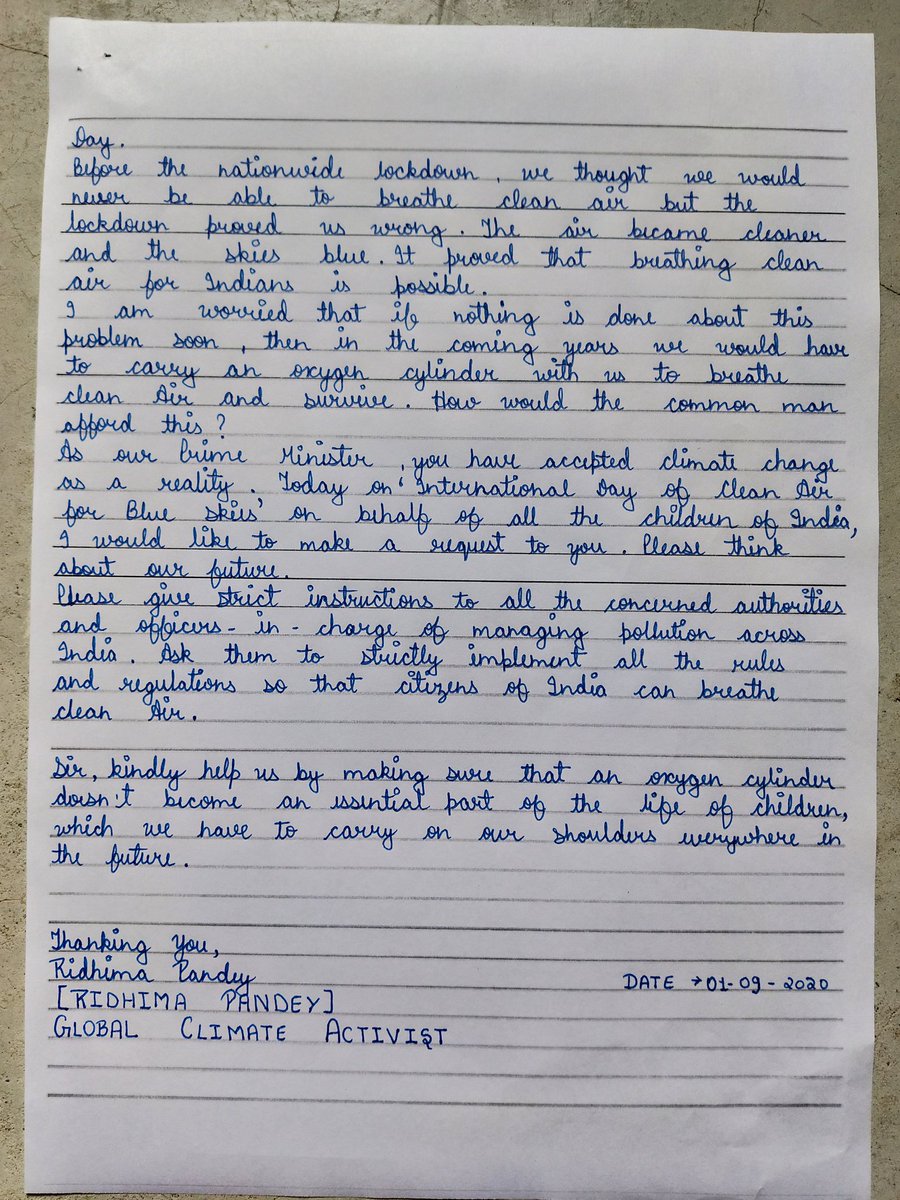 Day.
Before the nationwide lockdown, we thought we would
never be able to breathe clean air but the
lockdown proved us wrong. The air became cleaner
and the skies blue. It proved that breathing clean
air for Indians is possible.
I am worried that if nothing is done about this
problem soon, then in the coming years we would have
to carry an oxygen cylinder with us to breathe
clean Air and survive. How would the common man
afford this?
As our Prime Minister, you have accepted climate change
as a reality. Today on 'International Day of Clean Air
for Blue skies' on behalf of all the children of India,
I would like to make a request to you. Please think
about our future.
Please give strict instructions to all the concerned authorities
and officers-in-charge of managing pollution across
India. Ask them to strictly implement all the rules
and regulations so that citizens of India can breathe
clean Air.
Sir, kindly help us by making sure that an oxygen cylinder
doesn't become an essential part of the life of children,
which we have to carry on our shoulders everywhere in
the future.
Thanking You,
Ridhima Pandey
DATE → 01-09-2020
[RIDHIMA PANDEY]
GLOBAL CLIMATE ACTIVIST